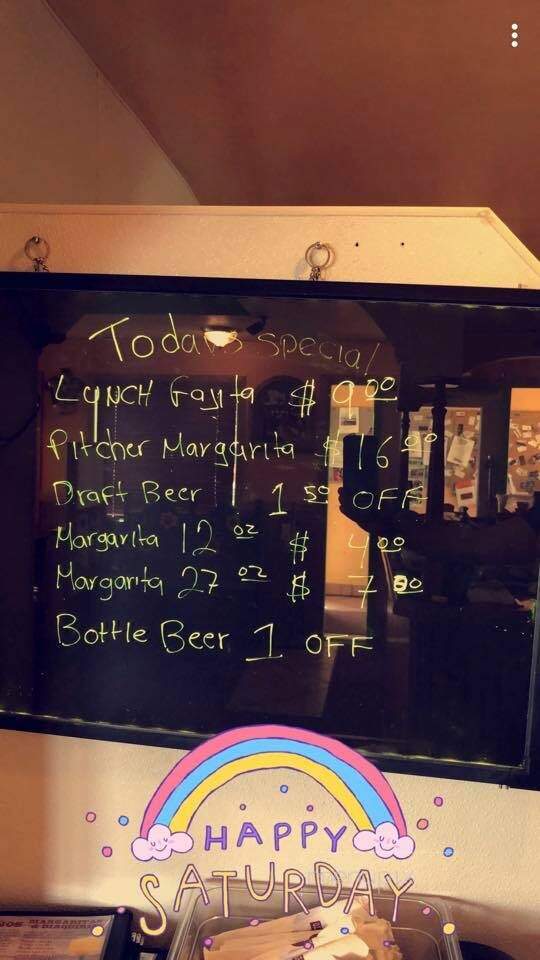 Today's special
LyNCH Fajita $ 9 00
Pitcher Margarita $ 16 00
Draft Beer 1 50 OFF
Margarita 12 oz $ 4 00
Margarita 27 oz $ 7 00
Bottle Beer 1 OFF
HAPPY
SATURDAY
MARGARITAS